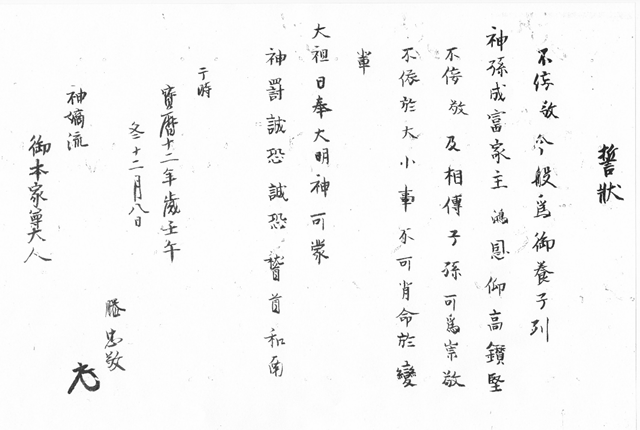 誓狀
不侫敬今般爲御養子列
神孫成富家主鴻恩仰高鑽堅
不侫敬及相傳子孫可爲崇敬
不依於大小事不可肖命於變
軰
大祖日奉大明神可蒙
神罸誠恐誠恐 首和南
于時
寳曆十二年歲壬午
冬十二月八日
滕忠敬
神嫡流
御本家尊大人